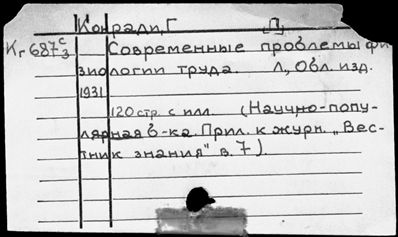 Конради, Г [Г]
Кг 687 с/3 Современные проблемы фи
зиологии труда. Л, Обл. изд.
1931
120 стр. с илл. (Научно-попу-
лярная б-ка. Прил. к журн. „Вес-
тник знания" в. 7).